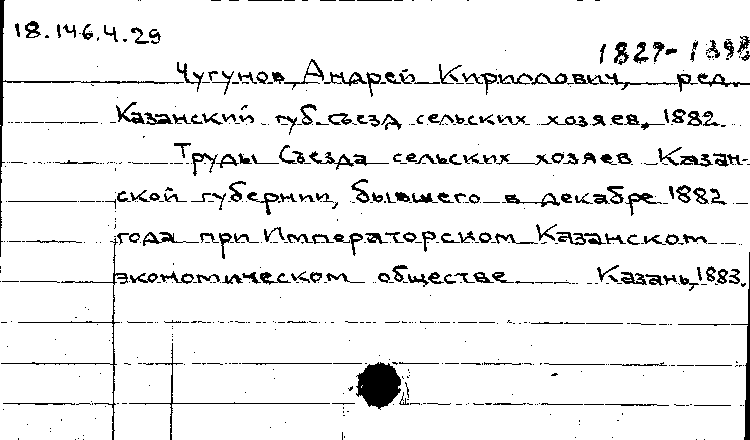 18.146.4.29
1827-1898
Чугунов, Андрей Кириллович, ред.
Казанский губ. съезд сельских хозяев, 1882.
Труды Съезда сельских хозяев Казан-
ской губернии, бывшего в декабре 1882
года при Императорском Казанском
экономическом обществе Казань, 1883.